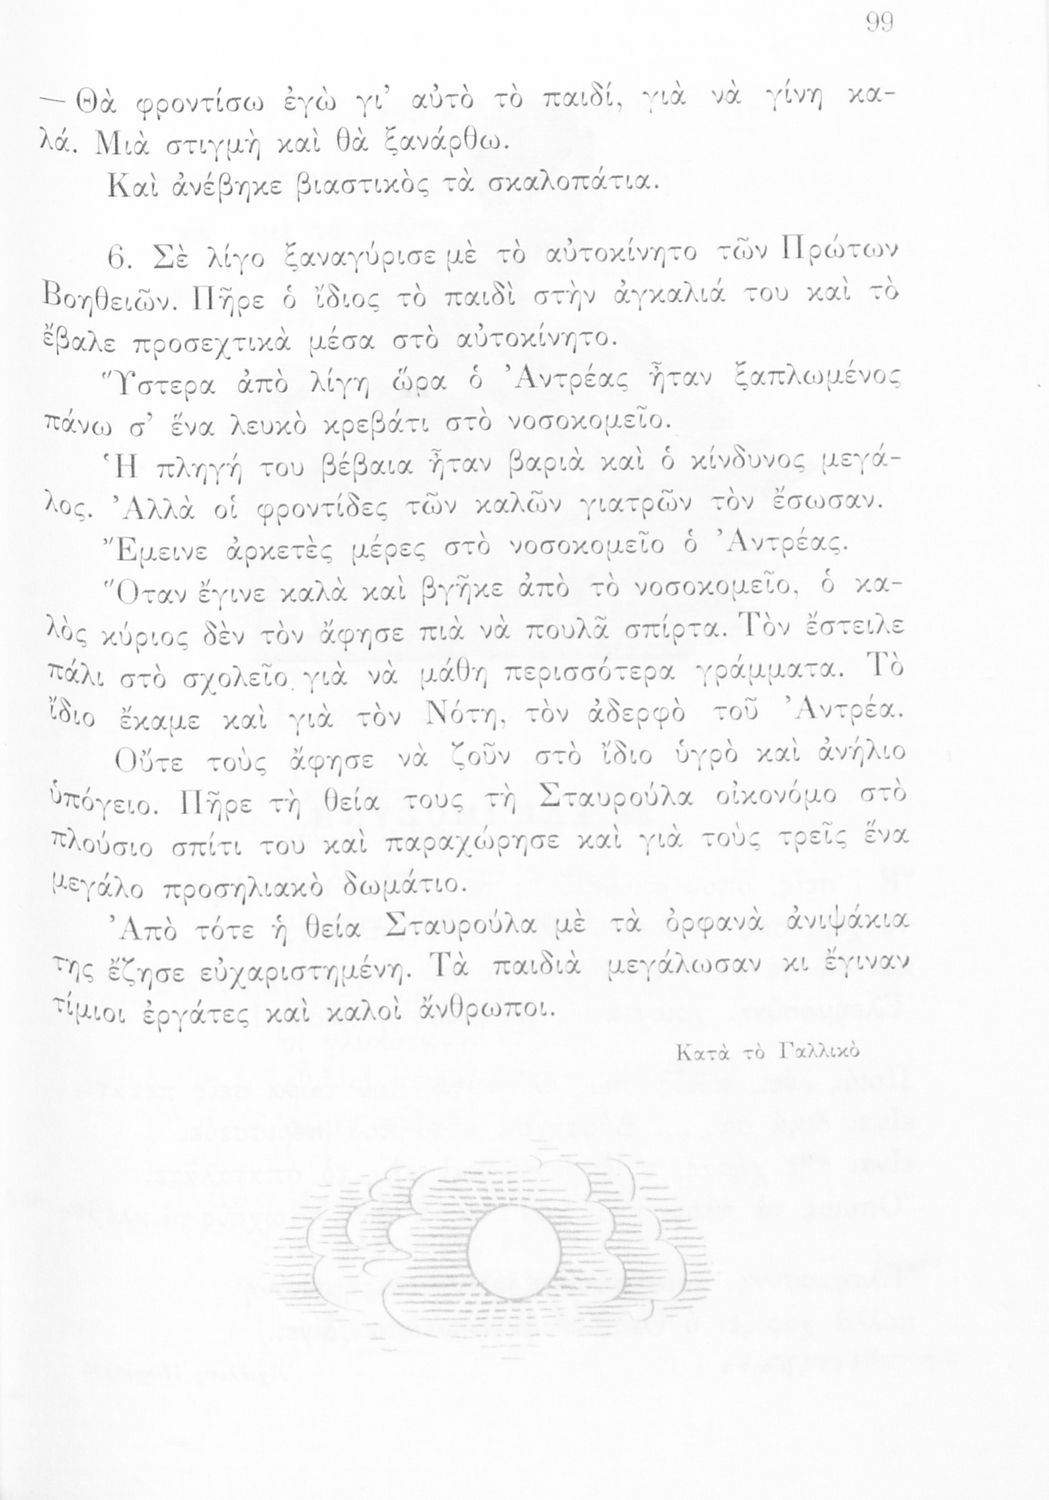 99
— Θὰ φροντίσω ἐγὼ γι’ αὐτὸ τὸ παιδί, γιὰ νὰ γίνη κα-
λά. Μιὰ στιγμὴ καὶ θὰ ξανάρθω.
Καὶ ἀνέβηκε βιαστικὸς τὰ σκαλοπάτια.
6. Σὲ λίγο ξαναγύρισε μὲ τὸ αὐτοκίνητο τῶν Πρώτων
Βοηθειῶν. Πῆρε ὁ ἴδιος τὸ παιδὶ στὴν ἀγκαλιά του καὶ τὸ
ἔβαλε προσεχτικὰ μέσα στὸ αὐτοκίνητο.
Ὕστερα ἀπὸ λίγη ὥρα ὁ Ἀντρέας ἦταν ξαπλωμένος
πάνω σ’ ἕνα λευκὸ κρεβάτι στὸ νοσοκομεῖο.
Ἡ πληγή του βέβαια ἦταν βαριὰ καὶ ὁ κίνδυνος μεγά-
λος. Ἀλλὰ οἱ φροντίδες τῶν καλῶν γιατρῶν τὸν ἔσωσαν.
Ἔμεινε ἀρκετὲς μέρες στὸ νοσοκομεῖο ὁ Ἀντρέας.
Ὅταν ἔγινε καλὰ καὶ βγῆκε ἀπὸ τὸ νοσοκομεῖο, ὁ κα-
λὸς κύριος δὲν τὸν ἄφησε πιὰ νὰ πουλᾶ σπίρτα. Τὸν ἔστειλε
πάλι στὸ σχολεῖο γιὰ νὰ μάθη περισσότερα γράμματα. Τὸ
ἴδιο ἔκαμε καὶ γιὰ τὸν Νότη, τὸν ἀδερφὸ τοῦ Ἀντρέα.
Οὔτε τοὺς ἄφησε νὰ ζοῦν στὸ ἴδιο ὑγρὸ καὶ ἀνήλιο
ὑπόγειο. Πῆρε τὴ θεία τους τὴ Σταυρούλα οἰκονόμο στὸ
πλούσιο σπίτι του καὶ παραχώρησε καὶ γιὰ τοὺς τρεῖς ἕνα
μεγάλο προσηλιακὸ δωμάτιο.
Ἀπὸ τότε ἡ θεία Σταυρούλα μὲ τὰ ὀρφανὰ ἀνιψάκια
της ἔζησε εὐχαριστημένη. Τὰ παιδιὰ μεγάλωσαν κι ἔγιναν
τίμιοι ἐργάτες καὶ καλοὶ ἄνθρωποι.
Κατὰ τὸ Γαλλικὸ